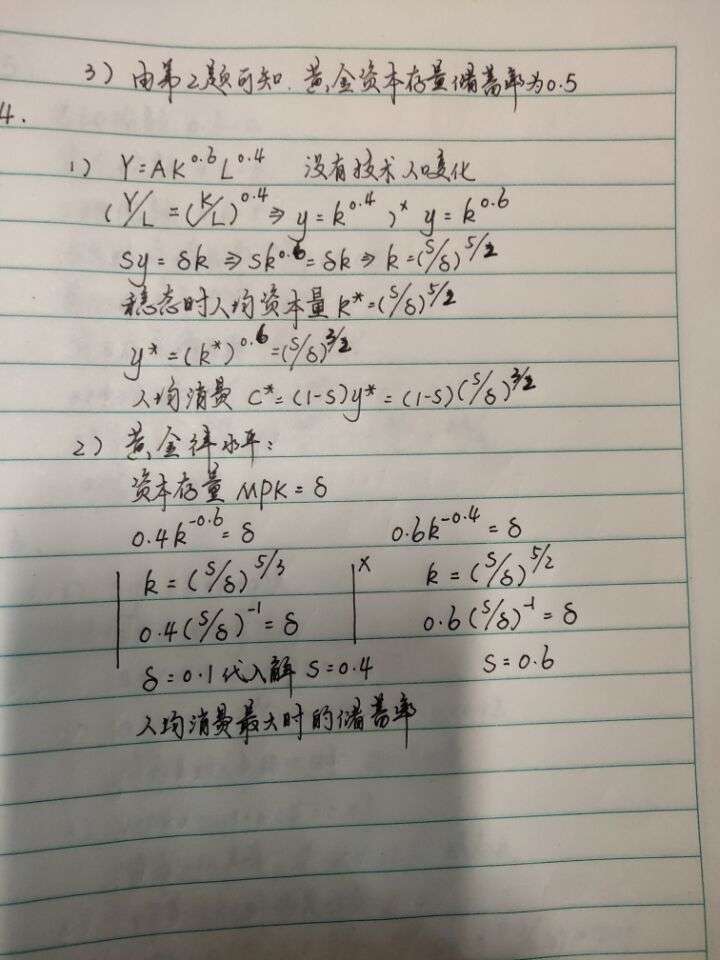 3) 由第2题可知. 黄金资本存量储蓄率为0.5
4.
1) Y=AK^0.6 L^0.4 没有技术人口变化
(Y/L=(K/L)^0.4⇒y=k^0.4)× y=k^0.6
Sy=δk⇒Sk^0.6=δk⇒k=(S/δ)^5/2
稳态时人均资本量k*=(S/δ)^5/2
y*=(k*)^0.6=(S/δ)^3/2
人均消费 C*=(1-S)y*=(1-S)(S/δ)^3/2
2) 黄金律水平:
资本存量 MPK=δ
0.4k^-0.6=δ 0.6k^-0.4=δ
k=(S/δ)^5/3 × k=(S/δ)^5/2
0.4(S/δ)^-1=δ 0.6(S/δ)^-1=δ
δ=0.1代入解 S=0.4 S=0.6
人均消费最大时的储蓄率